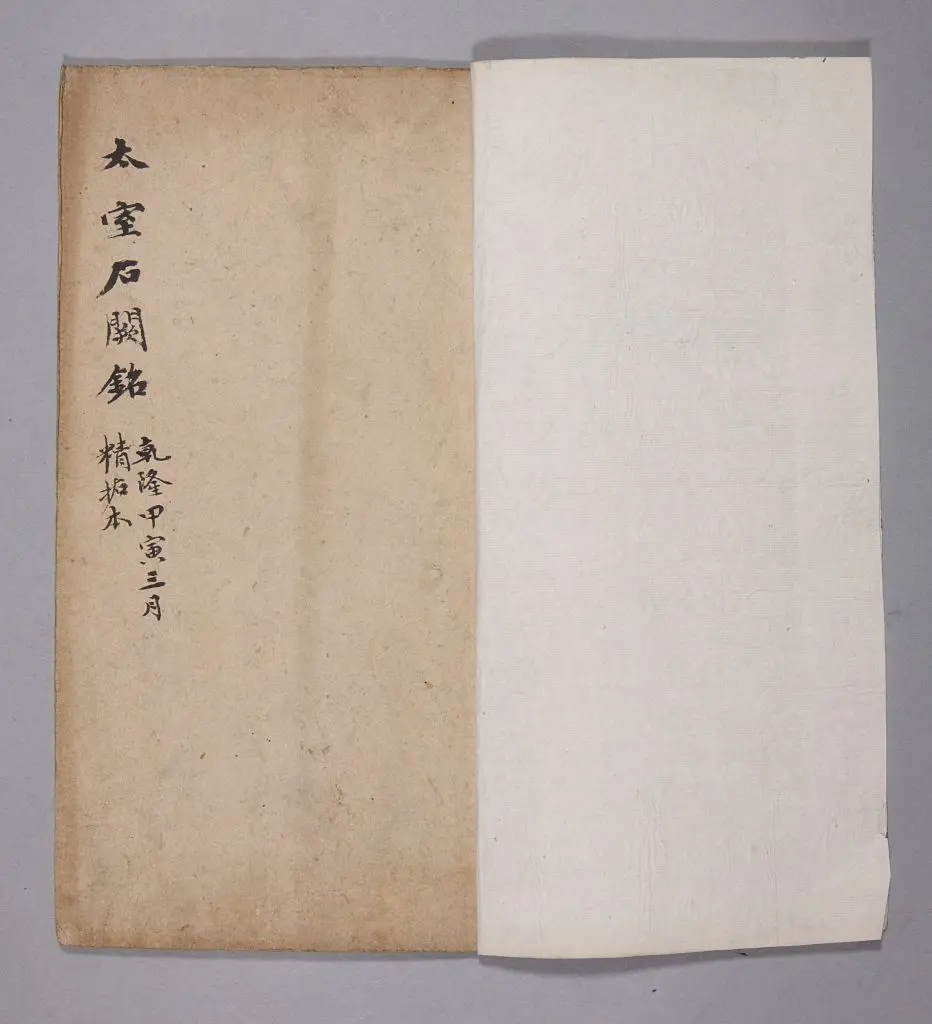 太室石闕銘
乾隆甲寅三月
精拓本